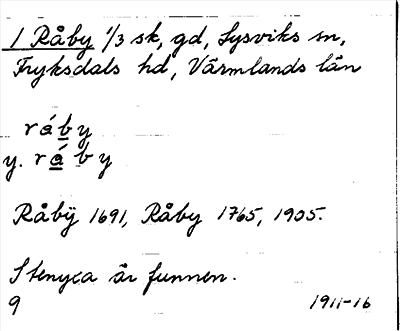 1 Råby 1/3 sk, gd, Lysviks sn,
Fryksdals hd, Värmlands län
råby
y. råby
Råbÿ 1691, Råby 1765, 1905.
Stenyxa är funnen.
9 1911-16